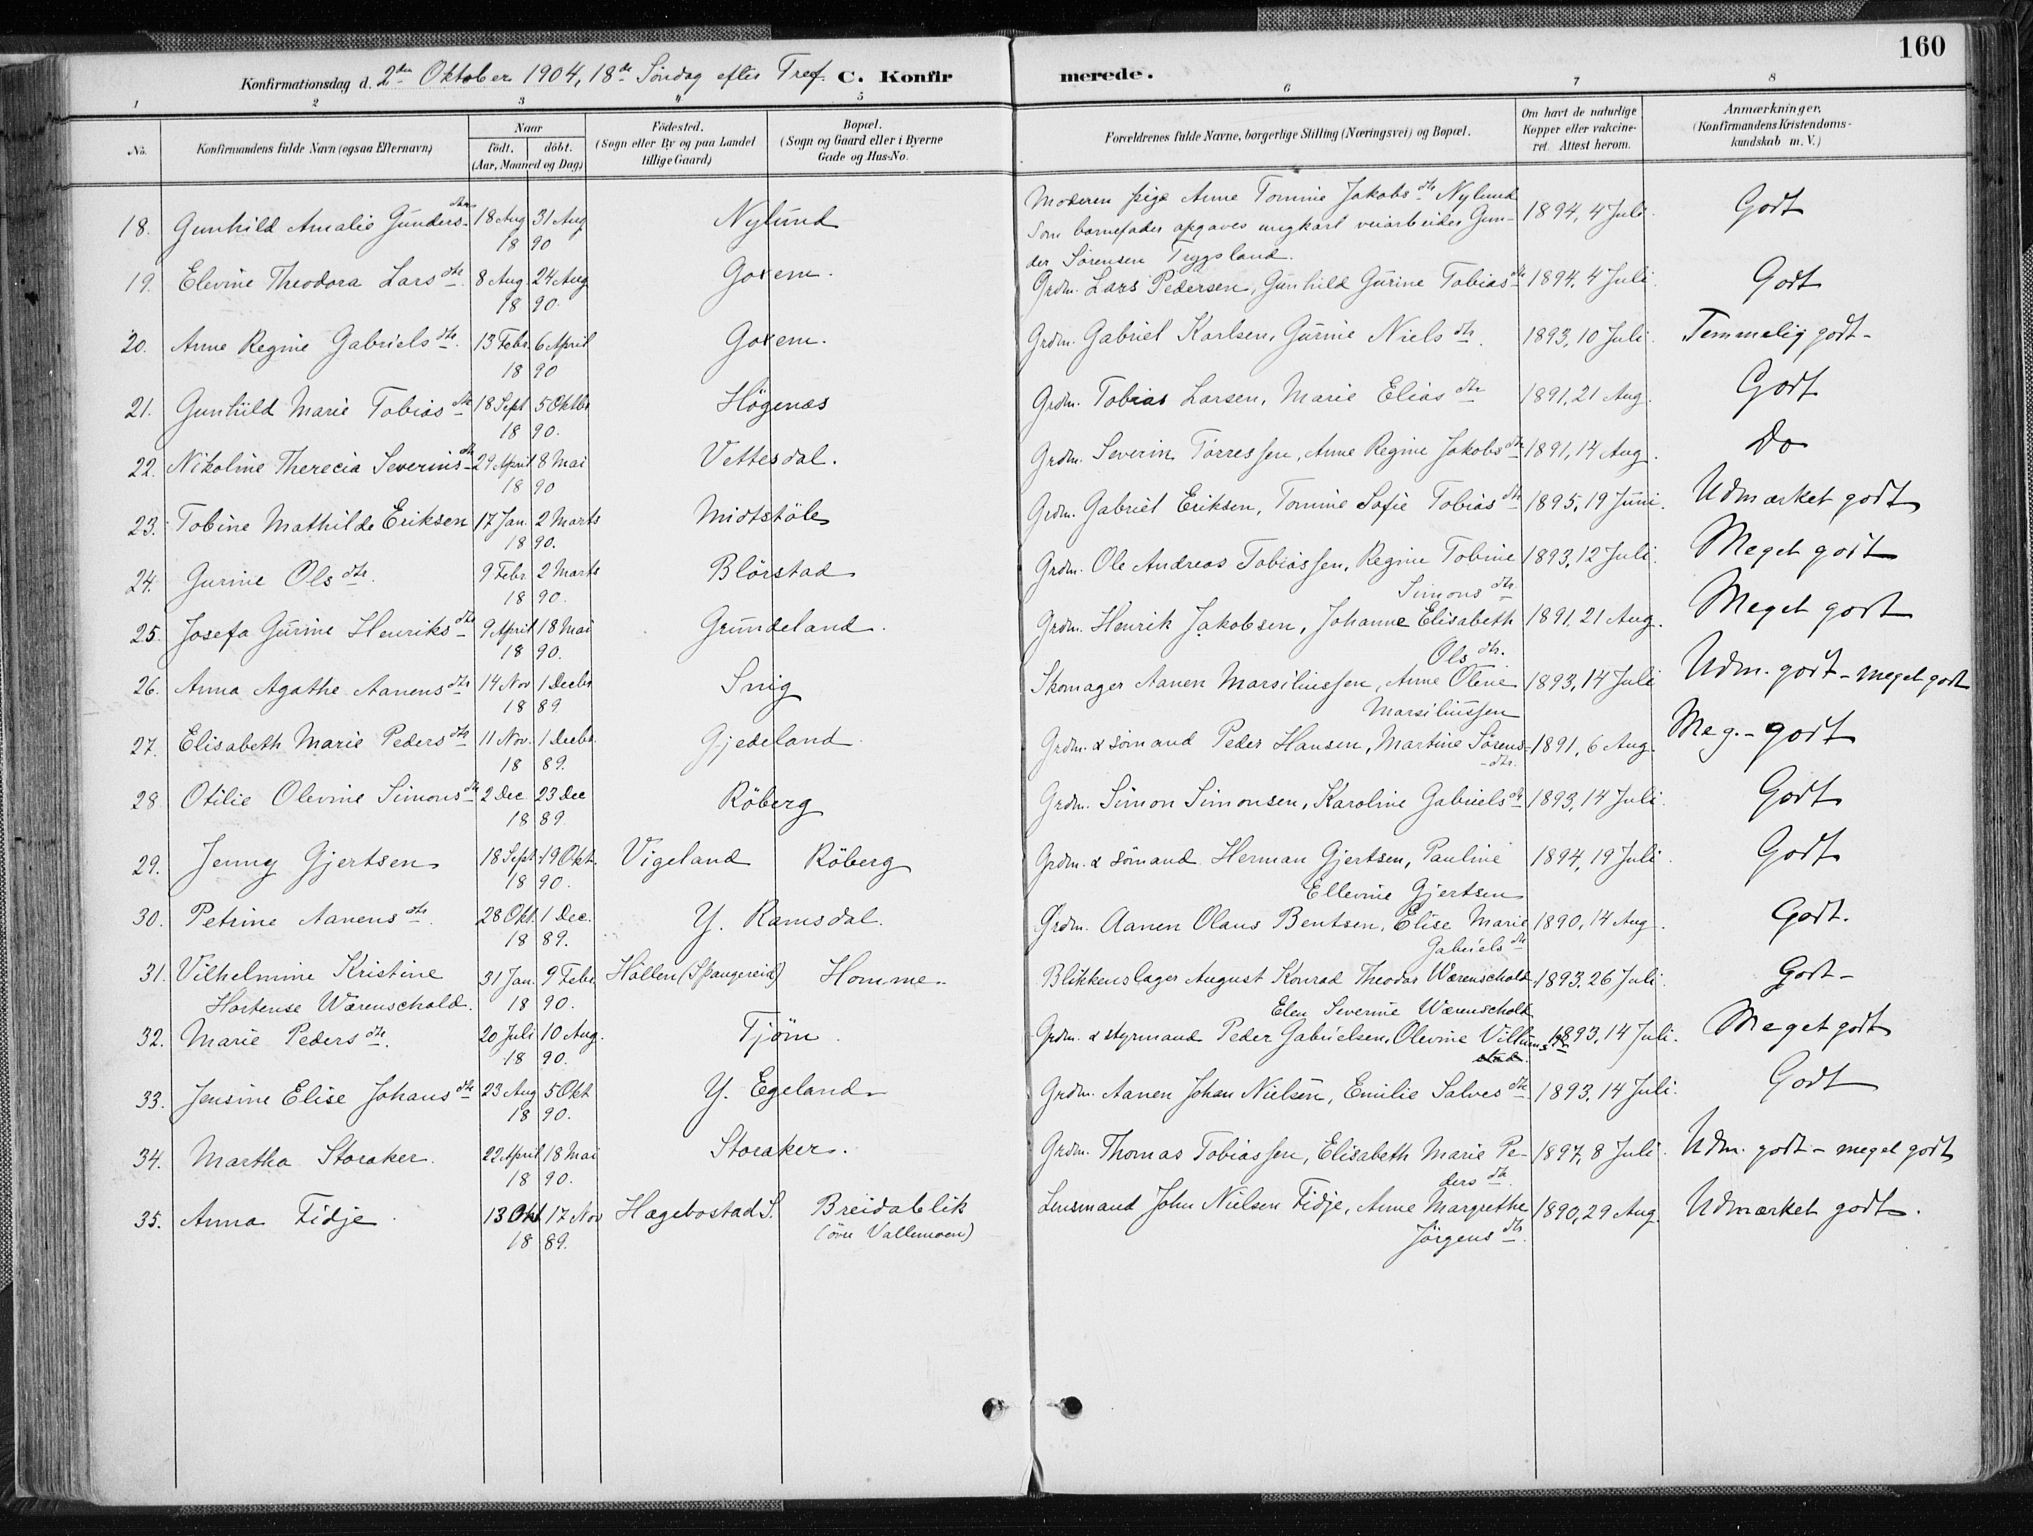 160
Konfirmationsdag d. 2den Oktober 1904, 18de Søndag efter Tref. C. Konfirmerede.
1 2 3 4 5 6 7 8
No.
Konfirmandens fulde Navn (ogsaa Efternavn)
Naar
født. døbt.
(Aar, Maaned og Dag)
Fødested.
(Sogn eller By og paa Landet
tillige Gaard)
Bopæl.
(Sogn og Gaard eller i Byerne
Gade og Hus-No.
Forældrenes fulde Navne, borgerlige Stilling (Næringsvei) og Bopæl.
Om havt de naturlige
Kopper eller vakcine-
ret. Attest herom.
Anmærkninger.
(Konfirmandens Kristendoms-
kundskab m. V.)
18. Gunhild Amalie Gunders-dtr 18 Aug 31 Aug 1890 Nylund Moderen pige Anne Tomine Jakobsdtr Nylund 1894, 4 Juli. Godt
Som barnefader opgaves ungkarl veiarbeider Gun-
der Sørensen Trygsland.
19. Elevine Theodora Larsdtr. 8 Aug. 24 Aug 1890. Goxem. Grdm. Lars Pedersen, Gunhild Gurine Tobiasdtr 1894, 4 Juli. Godt
20. Anne Regine Gabrielsdtr. 13 Febr. 6 April 1890 Goxem. Grdm. Gabriel Karlsen, Gurine Nielsdtr. 1893, 10 Juli. Temmelig godt-
21. Gunhild Marie Tobiasdtr 18 Sept 5 Oktbr 1890. Högenes Grdm. Tobias Larsen, Marie Eliasdtr 1891, 21 Aug. Godt
22. Nikoline Therecia Severins-dtr 29 April 8 Mai 1890 Vettesdal. Grdm. Severin Tørressen, Anne Regine Jakobsdtr 1891, 14 Aug. Do
23. Tobine Mathilde Eriksen 17 Jan. 2 Marts 1890. Midtstöle Grdm. Gabriel Eriksen, Tomine Sofie Tobiasdtr 1895, 19 Juni. Udmærket godt
24. Gurine Olsdtr. 9 Febr. 2 Marts 1890. Blörstad Grdm. Ole Andreas Tobiassen, Regine Tobine 1893, 12 Juli. Meget godt
Simonsdtr
25. Josefa Gurine Henriksdtr 9 April 18 Mai 1890. Grundeland. Grdm. Henrik Jakobsen, Johanne Elisabeth 1891, 21 Aug. Meget godt
Olsdtr.
26. Anna Agathe Aanensdtr 14 Nov 1 Decbr 1889 Snig Skomager Aanen Marsiliussen, Anne Oline 1893, 14 Juli Udm. godt - meget godt
Marsiliussen
27. Elisabeth Marie Pedersdtr 11 Nov. 1 Decbr. 1889. Gjedeland Grdm. & sømand Peder Hansen, Martine Sørens- 1891, 6 Aug. Meg. - godt
-dtr.
28. Otilie Olevine Simonsdtr 2 Dec 23 Dec 1889. Röberg Grdm. Simon Simonsen, Karoline Gabrielsdtr 1893, 14 Juli. Godt
29. Jenny Gjertsen 18 Sept. 19 Okt. 1890. Vigeland Röberg Grdm. & sømand Herman Gjertsen, Pauline 1894, 19 Juli. Godt
Ellevine Gjertsen
30. Petrine Aanensdtr. 28 Okt. 1 Dec. 1889. Y. Ramsdal. Grdm. Aanen Olaus Bentsen, Elise Marie 1890, 14 Aug. Godt.
Gabrielsdtr
31. Vilhelmine Kristine 31 Jan. 9 Febr. 1890. Höllen (Spangereid) Homme. Blikkenslager August Konrad Theodor Wærenschold, 1893, 26 Juli. Godt-
Hortense Wærenschold. Elen Severine Wærenschold
32. Marie Pedersdtr. 20 Juli 10 Aug. 1890. Tjöm. Grdm. & styrmand Peder Gabrielsen, Olevine Villums dtr 1893, 14 Juli. Meget godt
33. Jensine Elise Johansdtr 23 Aug 5 Okt 1890. Y. Egeland. Grdm. Aanen Johan Nielsen, Emilie Salvesdtr 1893, 14 Juli. Godt
34. Martha Storaker. 22 April 18 Mai 1890. Storaker. Grdm. Thomas Tobiassen, Elisabeth Marie Pe- 1897, 8 Juli. Udm. godt - meget godt
dersdtr.
35. Anna Fidje. 13 Okt 17 Nov 1889. Hægebostad S. Breidablik Lensmand John Nielsen Fidje, Anne Margrethe 1890, 29 Aug. Udmærket godt.
(övre Vallemoen) Jörgensdtr.